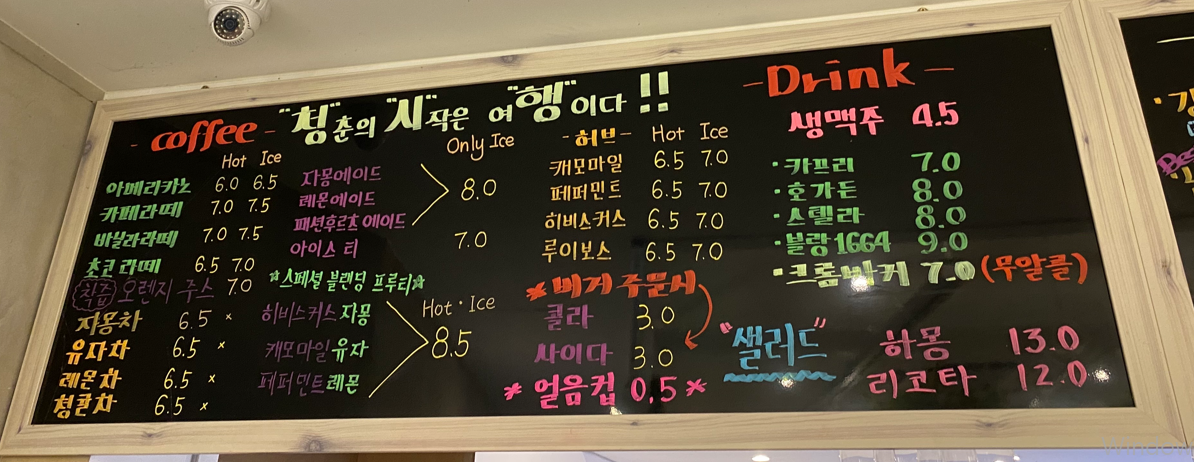 - coffee -
"청"춘의 "시"작은 여"행"이다 !!
Hot Ice
아메리카노 6.0 6.5
카페라떼 7.0 7.5
바닐라라떼 7.0 7.5
초코라떼 6.5 7.0
착즙 오렌지 주스 7.0
자몽차 6.5 x
유자차 6.5 x
레몬차 6.5 x
청귤차 6.5 x
Only Ice
자몽에이드
레몬에이드 8.0
패션후르츠 에이드
아이스 티 7.0
*스페셜 블랜딩 프루티*
Hot · Ice
히비스커스 자몽
캐모마일 유자 8.5
페퍼민트 레몬
- 허브 - Hot Ice
캐모마일 6.5 7.0
페퍼민트 6.5 7.0
히비스커스 6.5 7.0
루이보스 6.5 7.0
* 버거 주문시
콜라 3.0
사이다 3.0
* 얼음컵 0.5 *
- Drink -
생맥주 4.5
· 카프리 7.0
· 호가든 8.0
· 스텔라 8.0
· 블랑1664 9.0
· 크롬바커 7.0 (무알콜)
"샐러드"
하몽 13.0
리코타 12.0